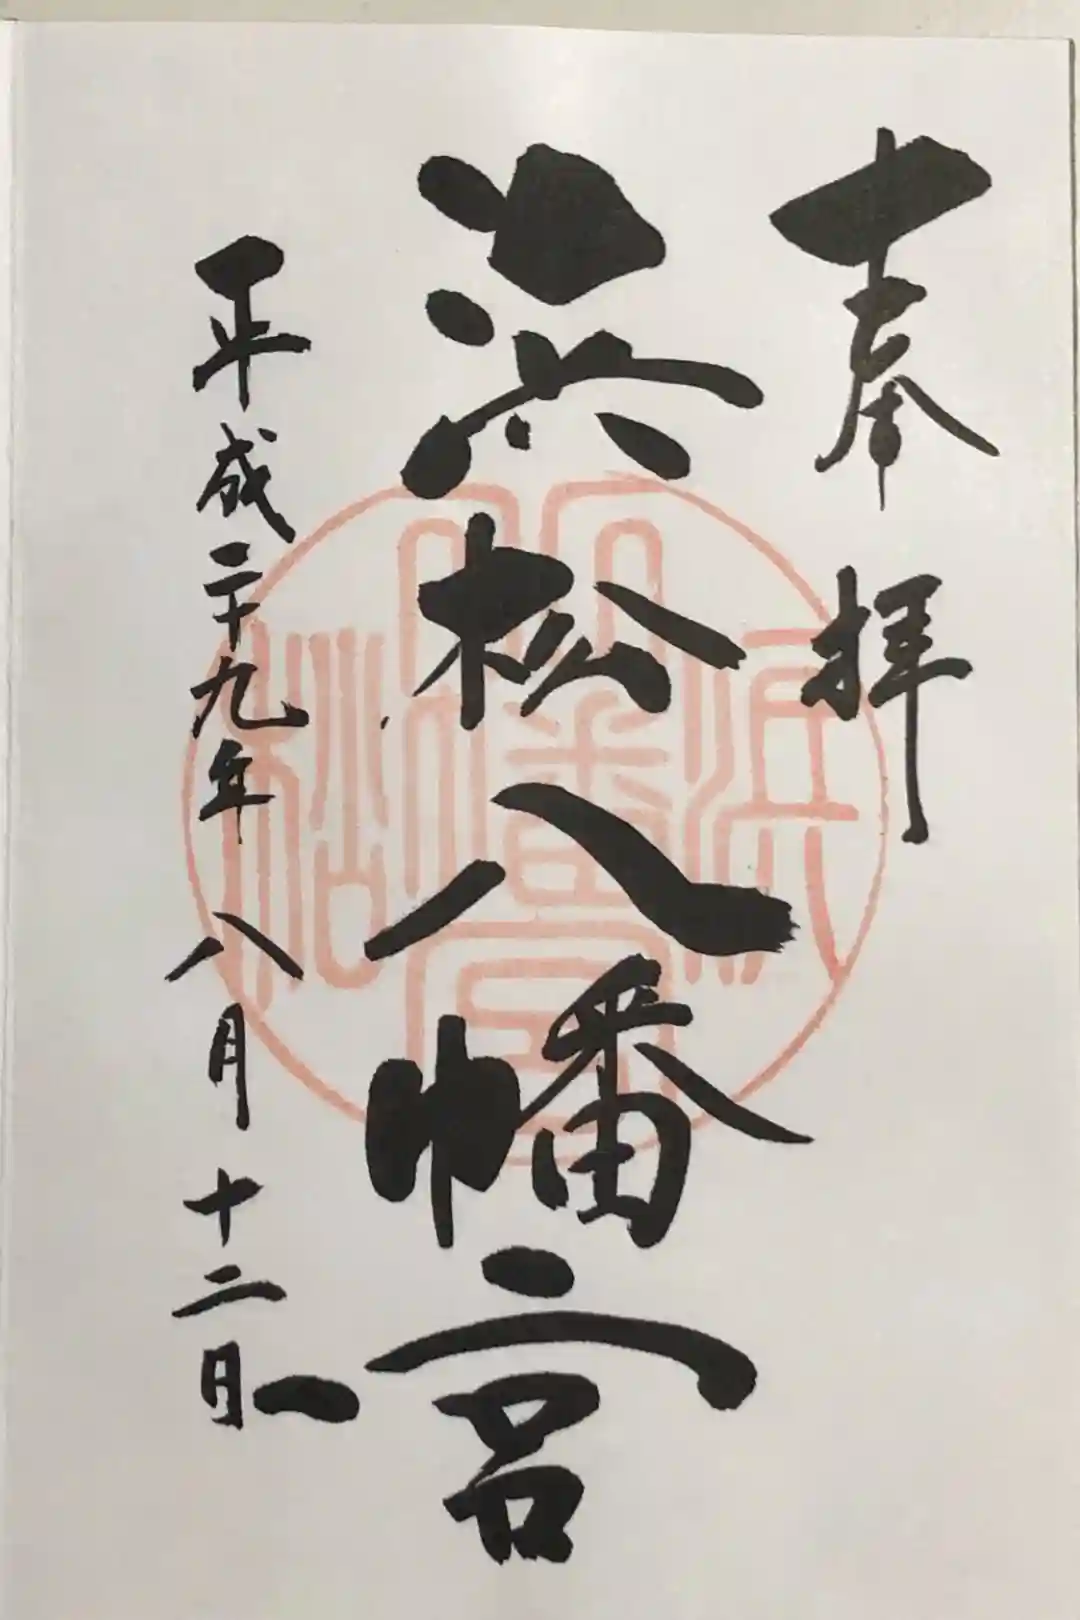 奉拝
浜松八幡宮
平成二十九年八月十二日
浜松
八幡宮